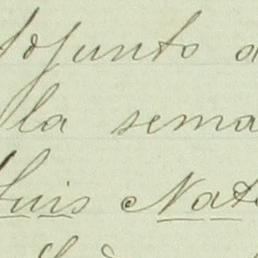 Adjunto a
la sema
Luis Nat